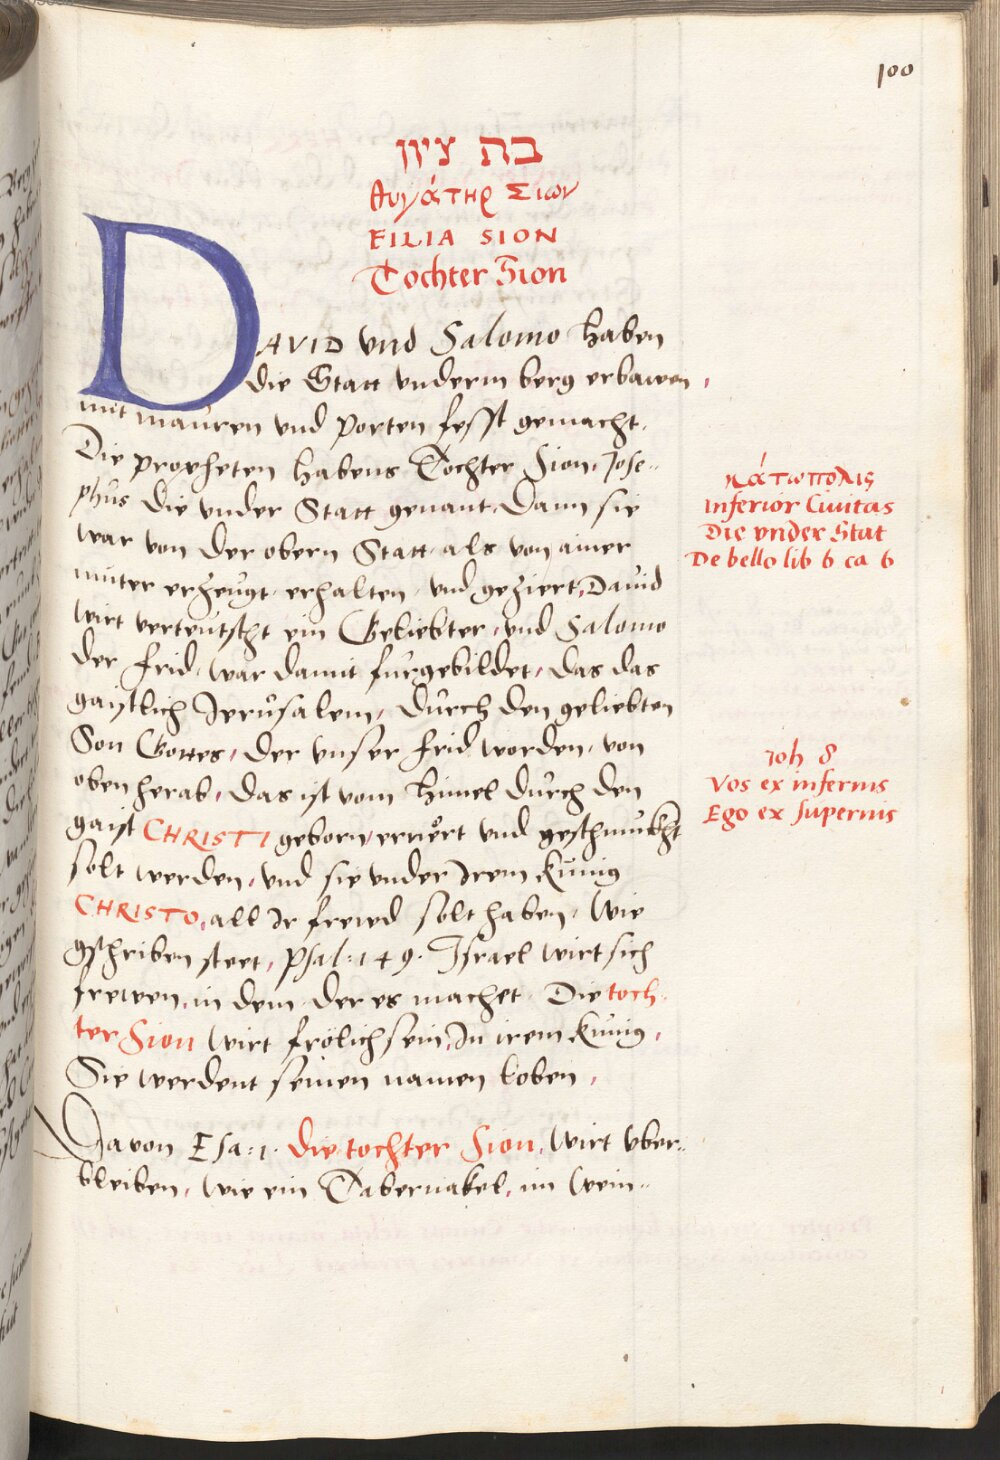 100
בת ציון
θυγάτηρ Σιων
FILIA SION
Tochter Sion
DAVID vnd Salomo haben
die Statt vnderm berg erbawen,
mit mauren vnd porten fesst gemacht.
Die propheten habens Tochter Sion, Jose-
phus die vnder Statt genant. Dann sie
war von der obern Statt, als von ainer
muter erzeugt, erhalten, vnd geziert. Dauid
wirt verteutscht ein Geliebter, vnd Salomo
der frid, war damit furgebildet, das das
gaistlich Jerusalem, durch den geliebten
Son Gottes, der vnser frid worden, von
oben herab, das ist vom himel durch den
gaist CHRISTI geborn, ernert vnd geschmukht
solt werden, vnd sie vnder Irem Kunig
CHRISTO, all Ir frewd solt haben. Wie
gschriben steet, psal: 149. Israel wirt sich
frewen, in dem, der es machet. Die toch-
ter Sion wirt frölich sein, In irem Kunig,
Sie werdent seinen namen loben,
Davon Esa: 1. die tochter Sion, wirt vber-
bleiben, wie ein Tabernakel, im Wein-
κάτωπολις
Inferior Ciuitas
Die vnder Stat
De bello lib 6 ca 6
Joh 8
Vos ex infernis
Ego ex supernis